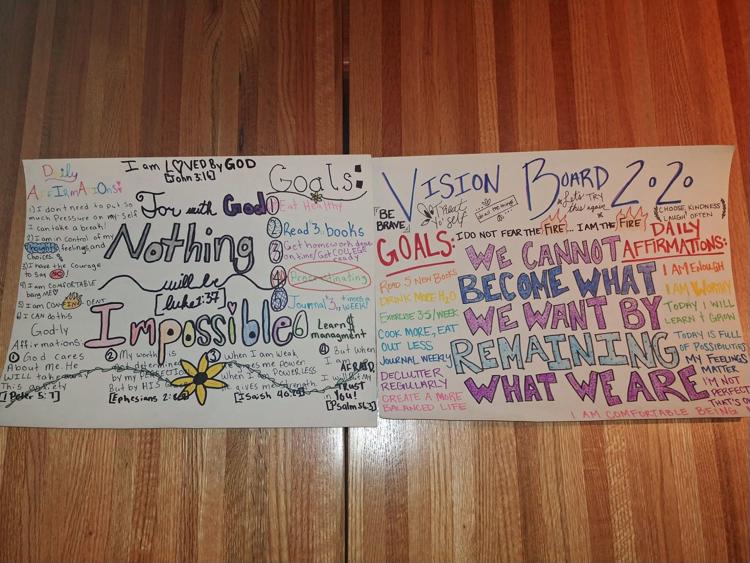 Daily
AffirmAtions:
1) I don't need to put so
much Pressure on my-self
I can take a break!
2) I am in control of my
thoughts, feelings, and
choices
3) I have the courage
to say NO
4) I am COMFORTABLE
being ME♡
5) I am CONFIDENT
6) I CAN do this
God-ly
Affirmations:
① God cares
About me. He
WILL take away
this anxiety
[1 Peter 5:7]
I am L♡VED By GOD
[John 3:16]
For with God
Nothing
will be
[Luke 1:37]
Impossible
② My worth is
not determined
by my PERFECTION
But by HIS
[Ephesians 2:
③ When I am weak
He gives me Power
When I am POWERLESS
He gives me strength.
[Isaiah 40:29]
④ But when
I am
AFRAID,
I will Put My
TRUST
in You!
[Psalm 56:3]
Goals:
① Eat Healthy
② Read 3 books
③ Get homework done
on time/Get COLLEGE
ready
④ Procrastinating
⑤ Journal 3x times a week
⑥ Learn $
managment
VISION BOARD 2020
BE
BRAVE
Treat
Yo' self
Let's TRY
this again
CHOOSE KINDNESS
LAUGH OFTEN
I DO NOT FEAR THE FIRE... I AM THE FIRE
GOALS:
READ 5 NEW BOOKS
DRINK MORE H2O
EXERCISE 3-5/WEEK
COOK MORE, EAT
OUT LESS
JOURNAL WEEKLY
DECLUTTER
REGULARLY
CREATE A MORE
BALANCED LIFE
WE CANNOT
BECOME WHAT
WE WANT BY
REMAINING
WHAT WE ARE
DAILY
AFFIRMATIONS:
I AM ENOUGH
I AM WORTHY
TODAY I WILL
LEARN & GROW
TODAY IS FULL
OF POSSIBILITIES
MY FEELINGS
MATTER
I'M NOT
PERFECT
THAT'S O
I AM COMFORTABLE BEING